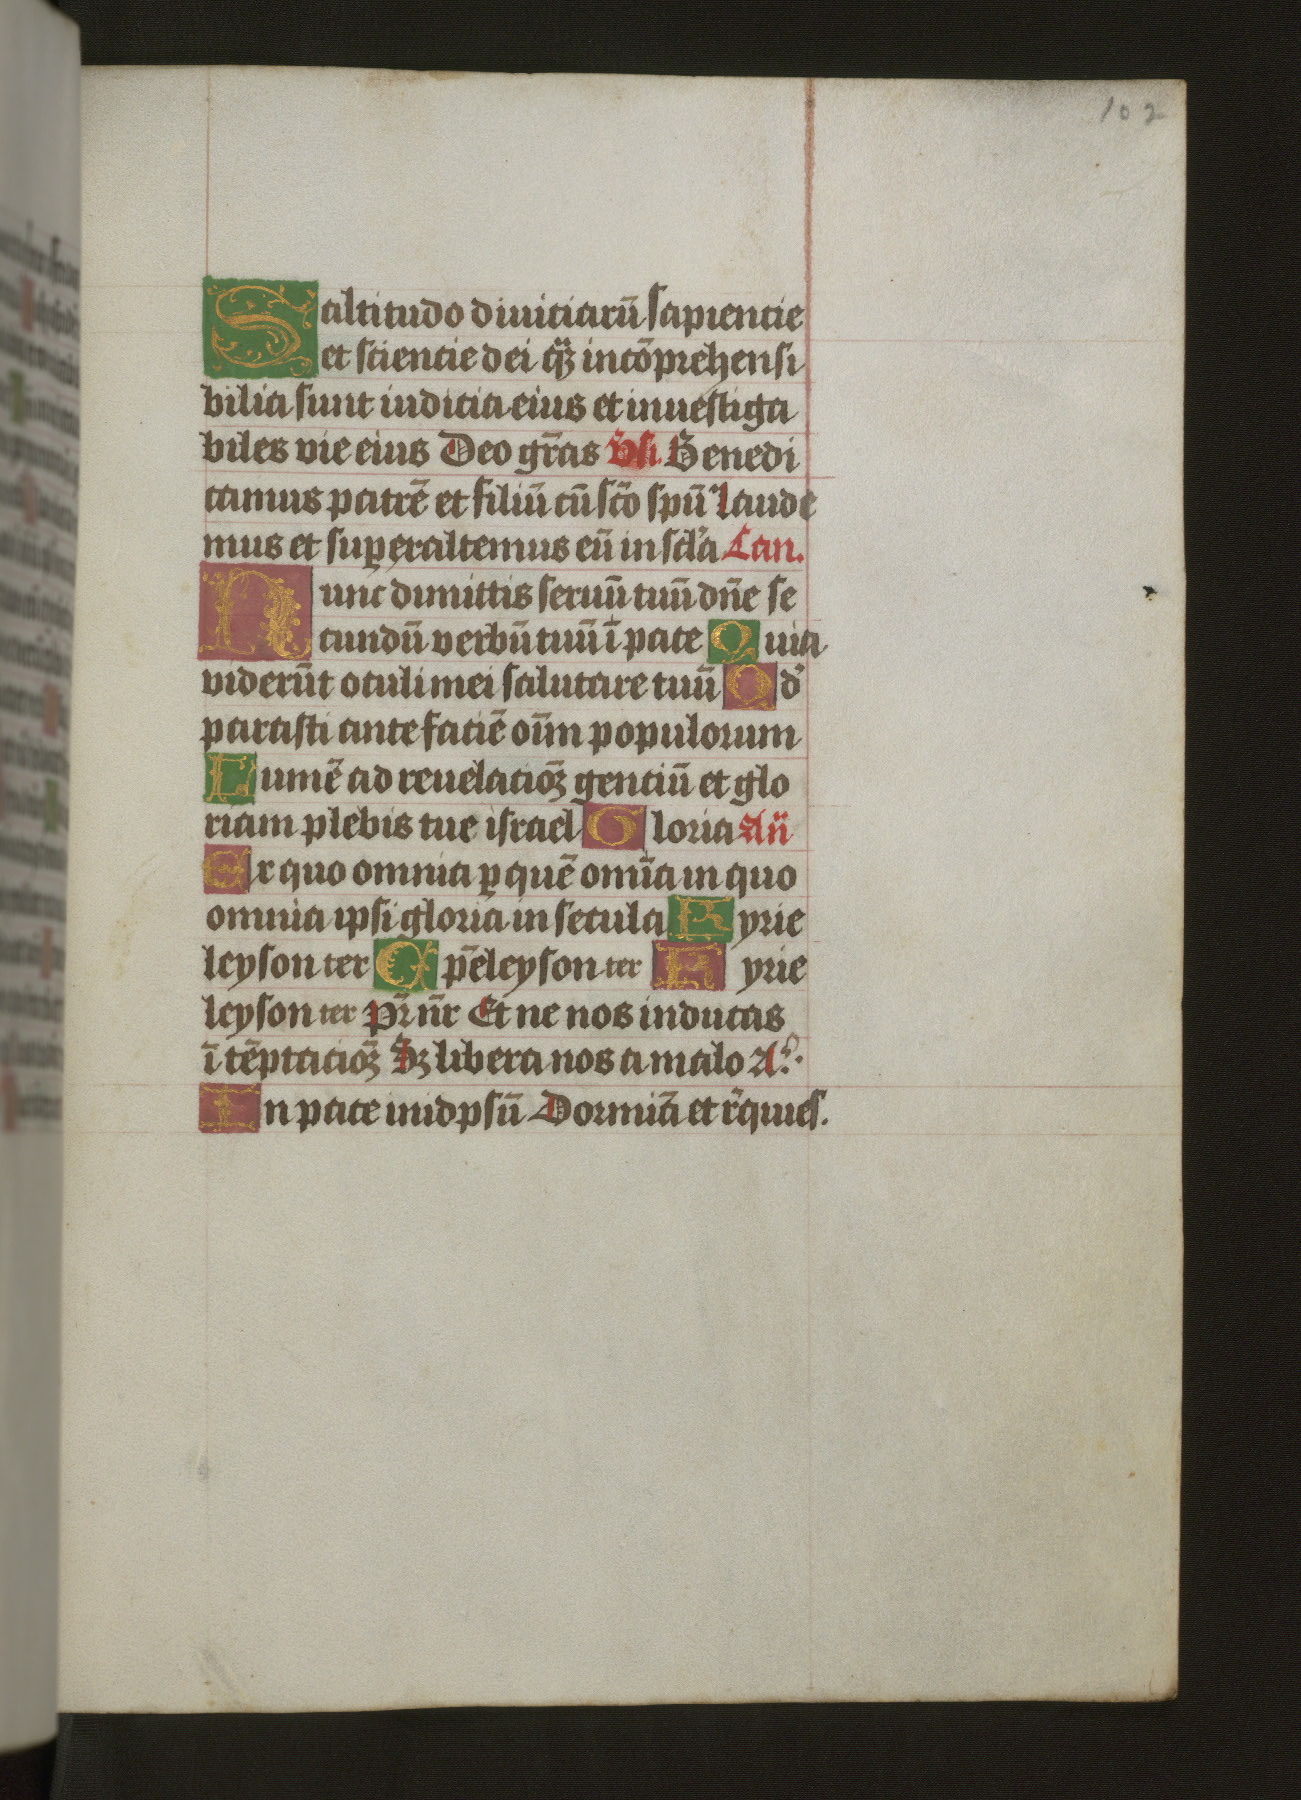 102
S altitudo diuiciarū sapiencie
et sciencie dei q̄ꝫ incōprehensi
bilia sunt iudicia eius et inuestiga
biles vie eius Deo gr̄as v̄si. Benedi
camus patrē et filiū cū sc̄o spū laude
mus et superaltemus eū in scl̓a Can.
Nunc dimittis seruū tuū dn̄e se
cundū verbū tuū ī pace Quia
viderūt oculi mei salutare tuū Qd̓
parasti ante faciē oūm populorum
Lumē ad reuelacioꝫ̄ genciū et glo
riam plebis tue israel Gloria An̄
Ex quo omnia ꝑ quē omīa in quo
omnia ipsi gloria in secula Kyrie
leyson ter Xp̄eleyson ter Kyrie
leyson ter Pr̄ nr̄ Et ne nos inducas
ī tēptacioꝫ̄ Sꝫ libera nos a malo A.
In pace inidpsū Dormiā et r̄quies.